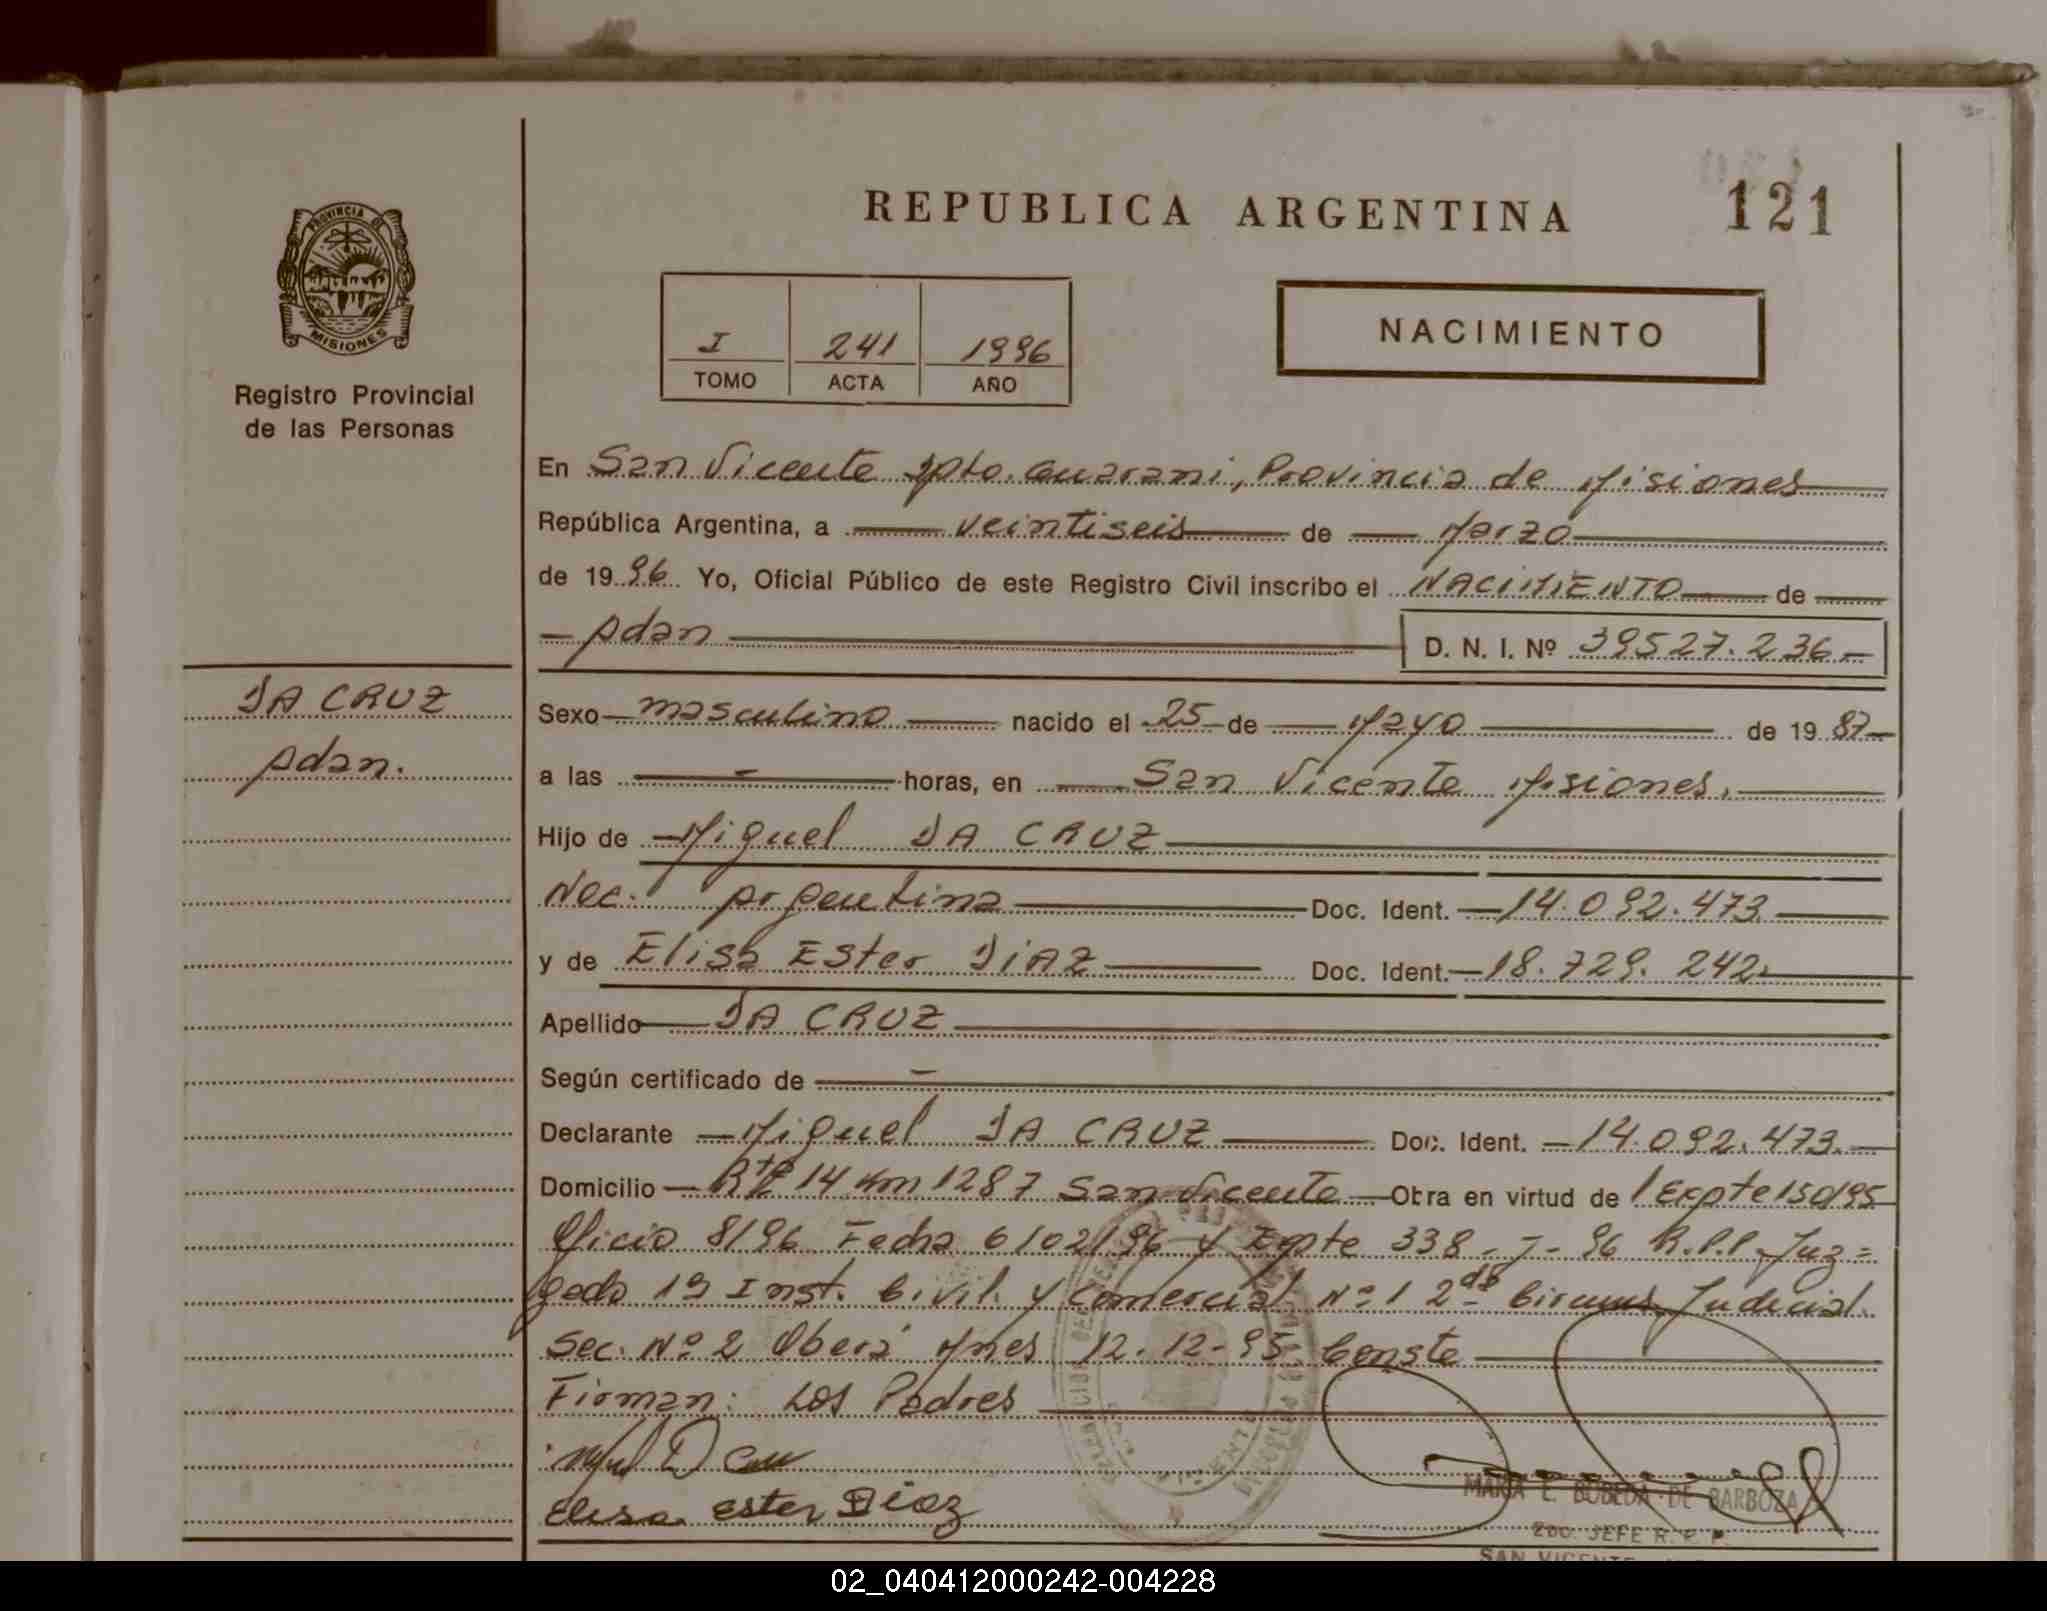 REPUBLICA ARGENTINA
121
PROVINCIA DE
MISIONES
Registro Provincial
de las Personas
I 241 1996
TOMO ACTA AÑO
NACIMIENTO
En San Vicente Dpto. Guarani, Provincia de Misiones
República Argentina, a veintiseis de Marzo
de 1996 Yo, Oficial Público de este Registro Civil inscribo el NACIMIENTO de
Adan D. N. I. Nº 39527.236.-
DA CRUZ
Adan.
Sexo masculino nacido el 25 de Mayo de 1987
a las - horas, en San Vicente Misiones.
Hijo de Miguel DA CRUZ
Nac. Argentina Doc. Ident. 14.092.473
y de Elisa Ester DIAZ Doc. Ident. 18.729.242
Apellido DA CRUZ
Según certificado de -
Declarante Miguel DA CRUZ Doc. Ident. 14.092.473.
Domicilio Rta 14 Km 1287 San Vicente Obra en virtud de Expte 150/95
Oficio 8/96 Fecha 6/02/96 y Expte 338-J-96 R.P.P. Juz=
gado 1º Inst. Civil y Comercial Nº 1 2da Circuns Judicial.
Sec. Nº 2 Oberá Mnes 12-12-95 Conste
Firman: Los Padres
Elisa Ester Diaz
MARIA E. BOBEDA DE BARBOZA
2do. JEFE R. P. P.
SAN VICENTE
02_040412000242-004228